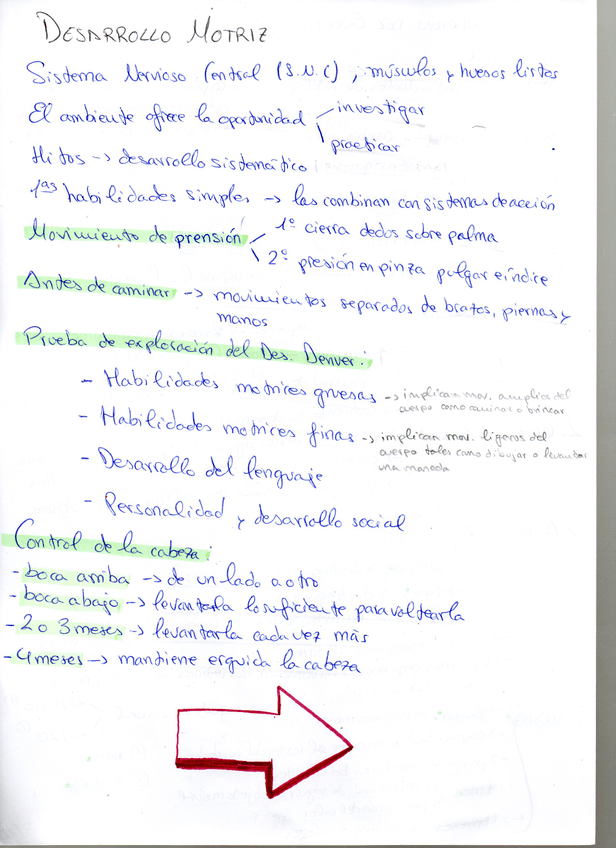 DESARROLLO MOTRIZ
Sistema Nervioso Central (S.N.C), músculos y huesos listos
El ambiente ofrece la oportunidad investigar
practicar
Hitos -> desarrollo sistemático
1as habilidades simples -> las combinan con sistemas de acción
Movimiento de prensión 1º cierra dedos sobre palma
2º presión en pinza pulgar e índice
Antes de caminar -> movimientos separados de brazos, piernas y
manos
Prueba de exploración del Des. Denver:
- Habilidades motrices gruesas -> implican mov. amplios del
cuerpo como caminar o brincar
- Habilidades motrices finas -> implican mov. ligeros del
cuerpo tales como dibujar o levantar
una moneda
- Desarrollo del lenguaje
- Personalidad y desarrollo social
Control de la cabeza:
- boca arriba -> de un lado a otro
- boca abajo -> levantarla lo suficiente para voltearla
- 2 o 3 meses -> levantarla cada vez más
- 4 meses -> mantiene erguida la cabeza